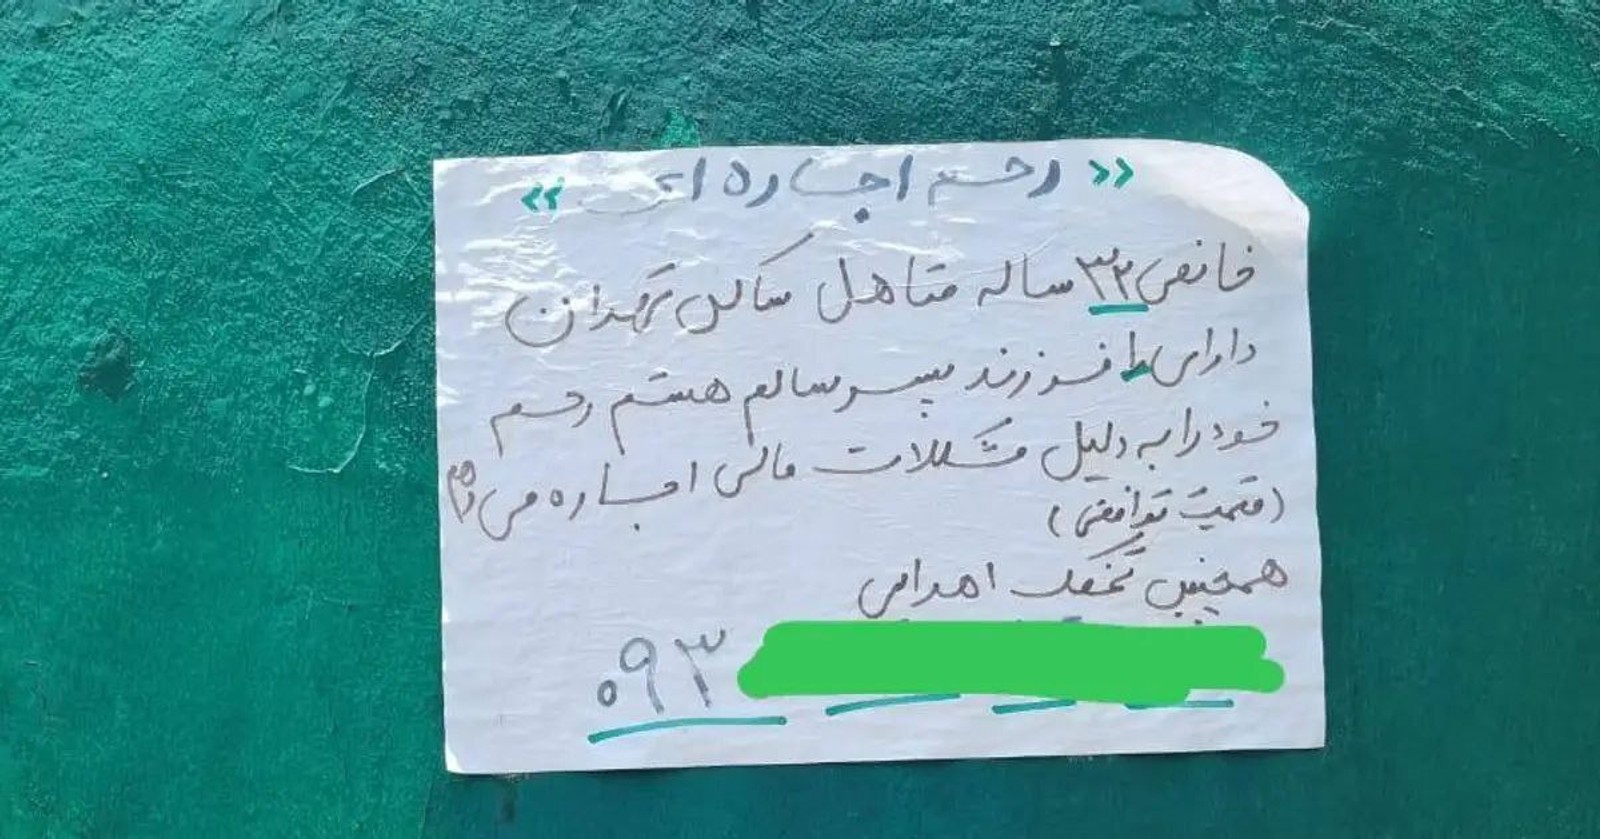 « رحم اجاره ای »
خانمی ۳۲ ساله متاهل ساکن تهران
دارای ۱ فرزند پسر سالم هستم رحم
خود را به دلیل مشکلات مالی اجاره می دهم
(قیمت توافقی)
همچنین تخمک اهدایی
۰۹۳